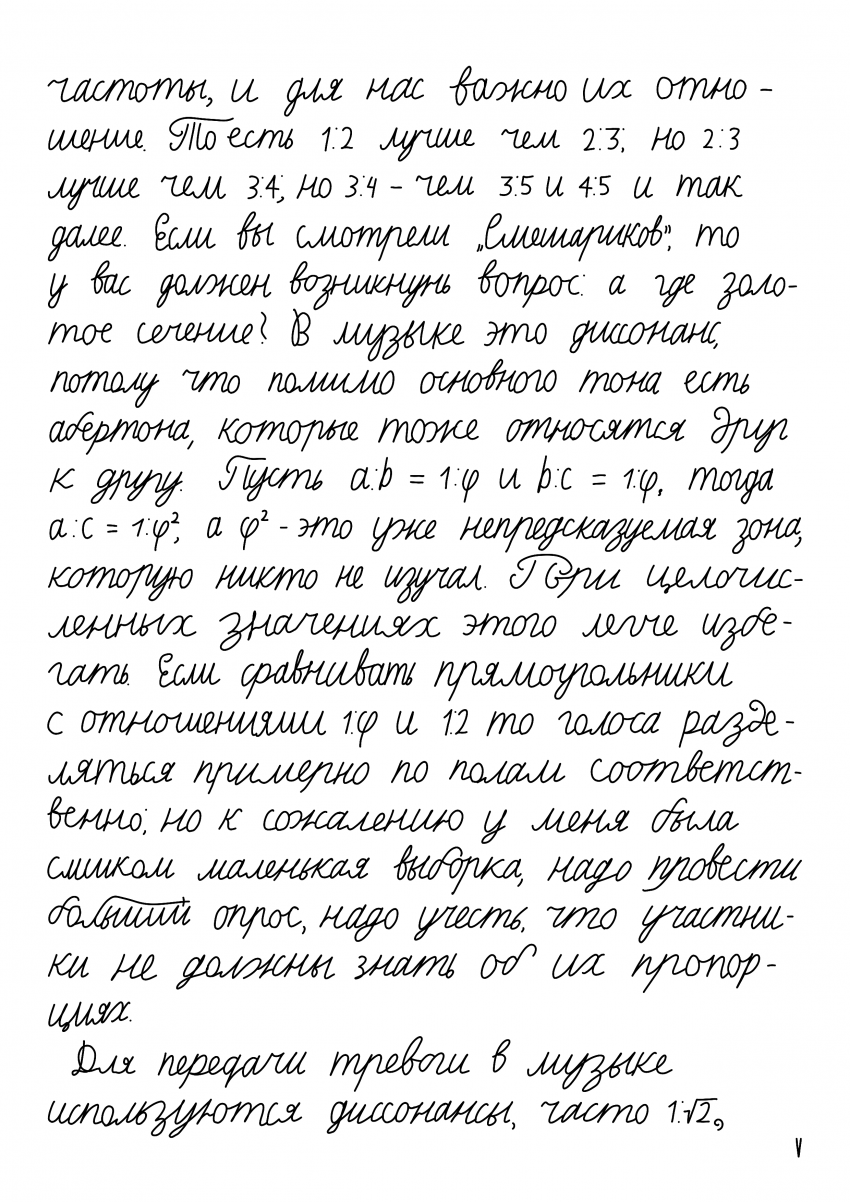 частоты, и для нас важно их отно-
шение. То есть 1:2 лучше чем 2:3, но 2:3
лучше чем 3:4, но 3:4 - чем 3:5 и 4:5 и так
далее. Если вы смотрели „Смешариков", то
у вас должен возникнунь вопрос: а где золо-
тое сечение? В музыке это диссонанс,
потому что помимо основного тона есть
абертона, которые тоже относятся друг
к другу. Пусть a:b = 1:φ и b:c = 1:φ, тогда
a:c = 1:φ², а φ² - это уже непредсказуемая зона,
которую никто не изучал. При целочис-
ленных значениях этого легче избе-
гать. Если сравнивать прямоугольники
с отношениями 1:φ и 1:2 то голоса разде-
ляться примерно по полам соответст-
венно, но к сожалению у меня была
смшком маленькая выборка, надо провести
больший опрос, надо учесть, что участни-
ки не должны знать об их пропор-
циях.
Для передачи тревоги в музыке
используются диссонансы, часто 1:√2,
V